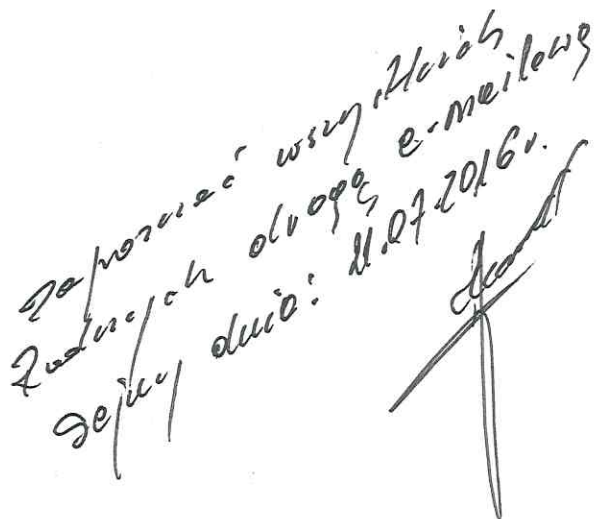 Zapoznać wszystkich
Radnych drogą e-mailową
Sejny dnia: 21.07.2016 r.